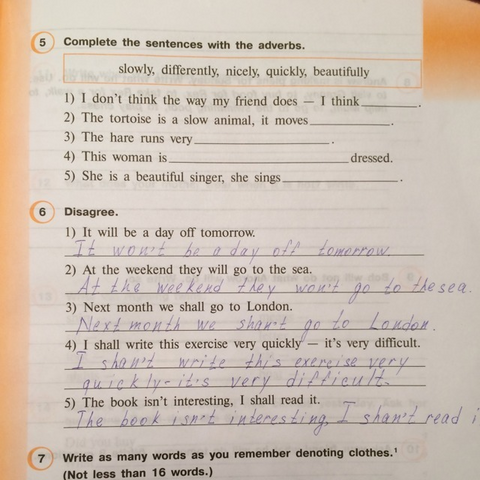 5 Complete the sentences with the adverbs.
slowly, differently, nicely, quickly, beautifully
1) I don't think the way my friend does — I think________.
2) The tortoise is a slow animal, it moves___________.
3) The hare runs very___________________.
4) This woman is_________________________dressed.
5) She is a beautiful singer, she sings________________.
6 Disagree.
1) It will be a day off tomorrow.
It won't be a day off tomorrow.
2) At the weekend they will go to the sea.
At the weekend they won't go to the sea.
3) Next month we shall go to London.
Next month we shan't go to London.
4) I shall write this exercise very quickly — it's very difficult.
I shan't write this exercise very
quickly-it's very difficult.
5) The book isn't interesting, I shall read it.
The book isn't interesting, I shan't read i
7 Write as many words as you remember denoting clothes.¹
(Not less than 16 words.)